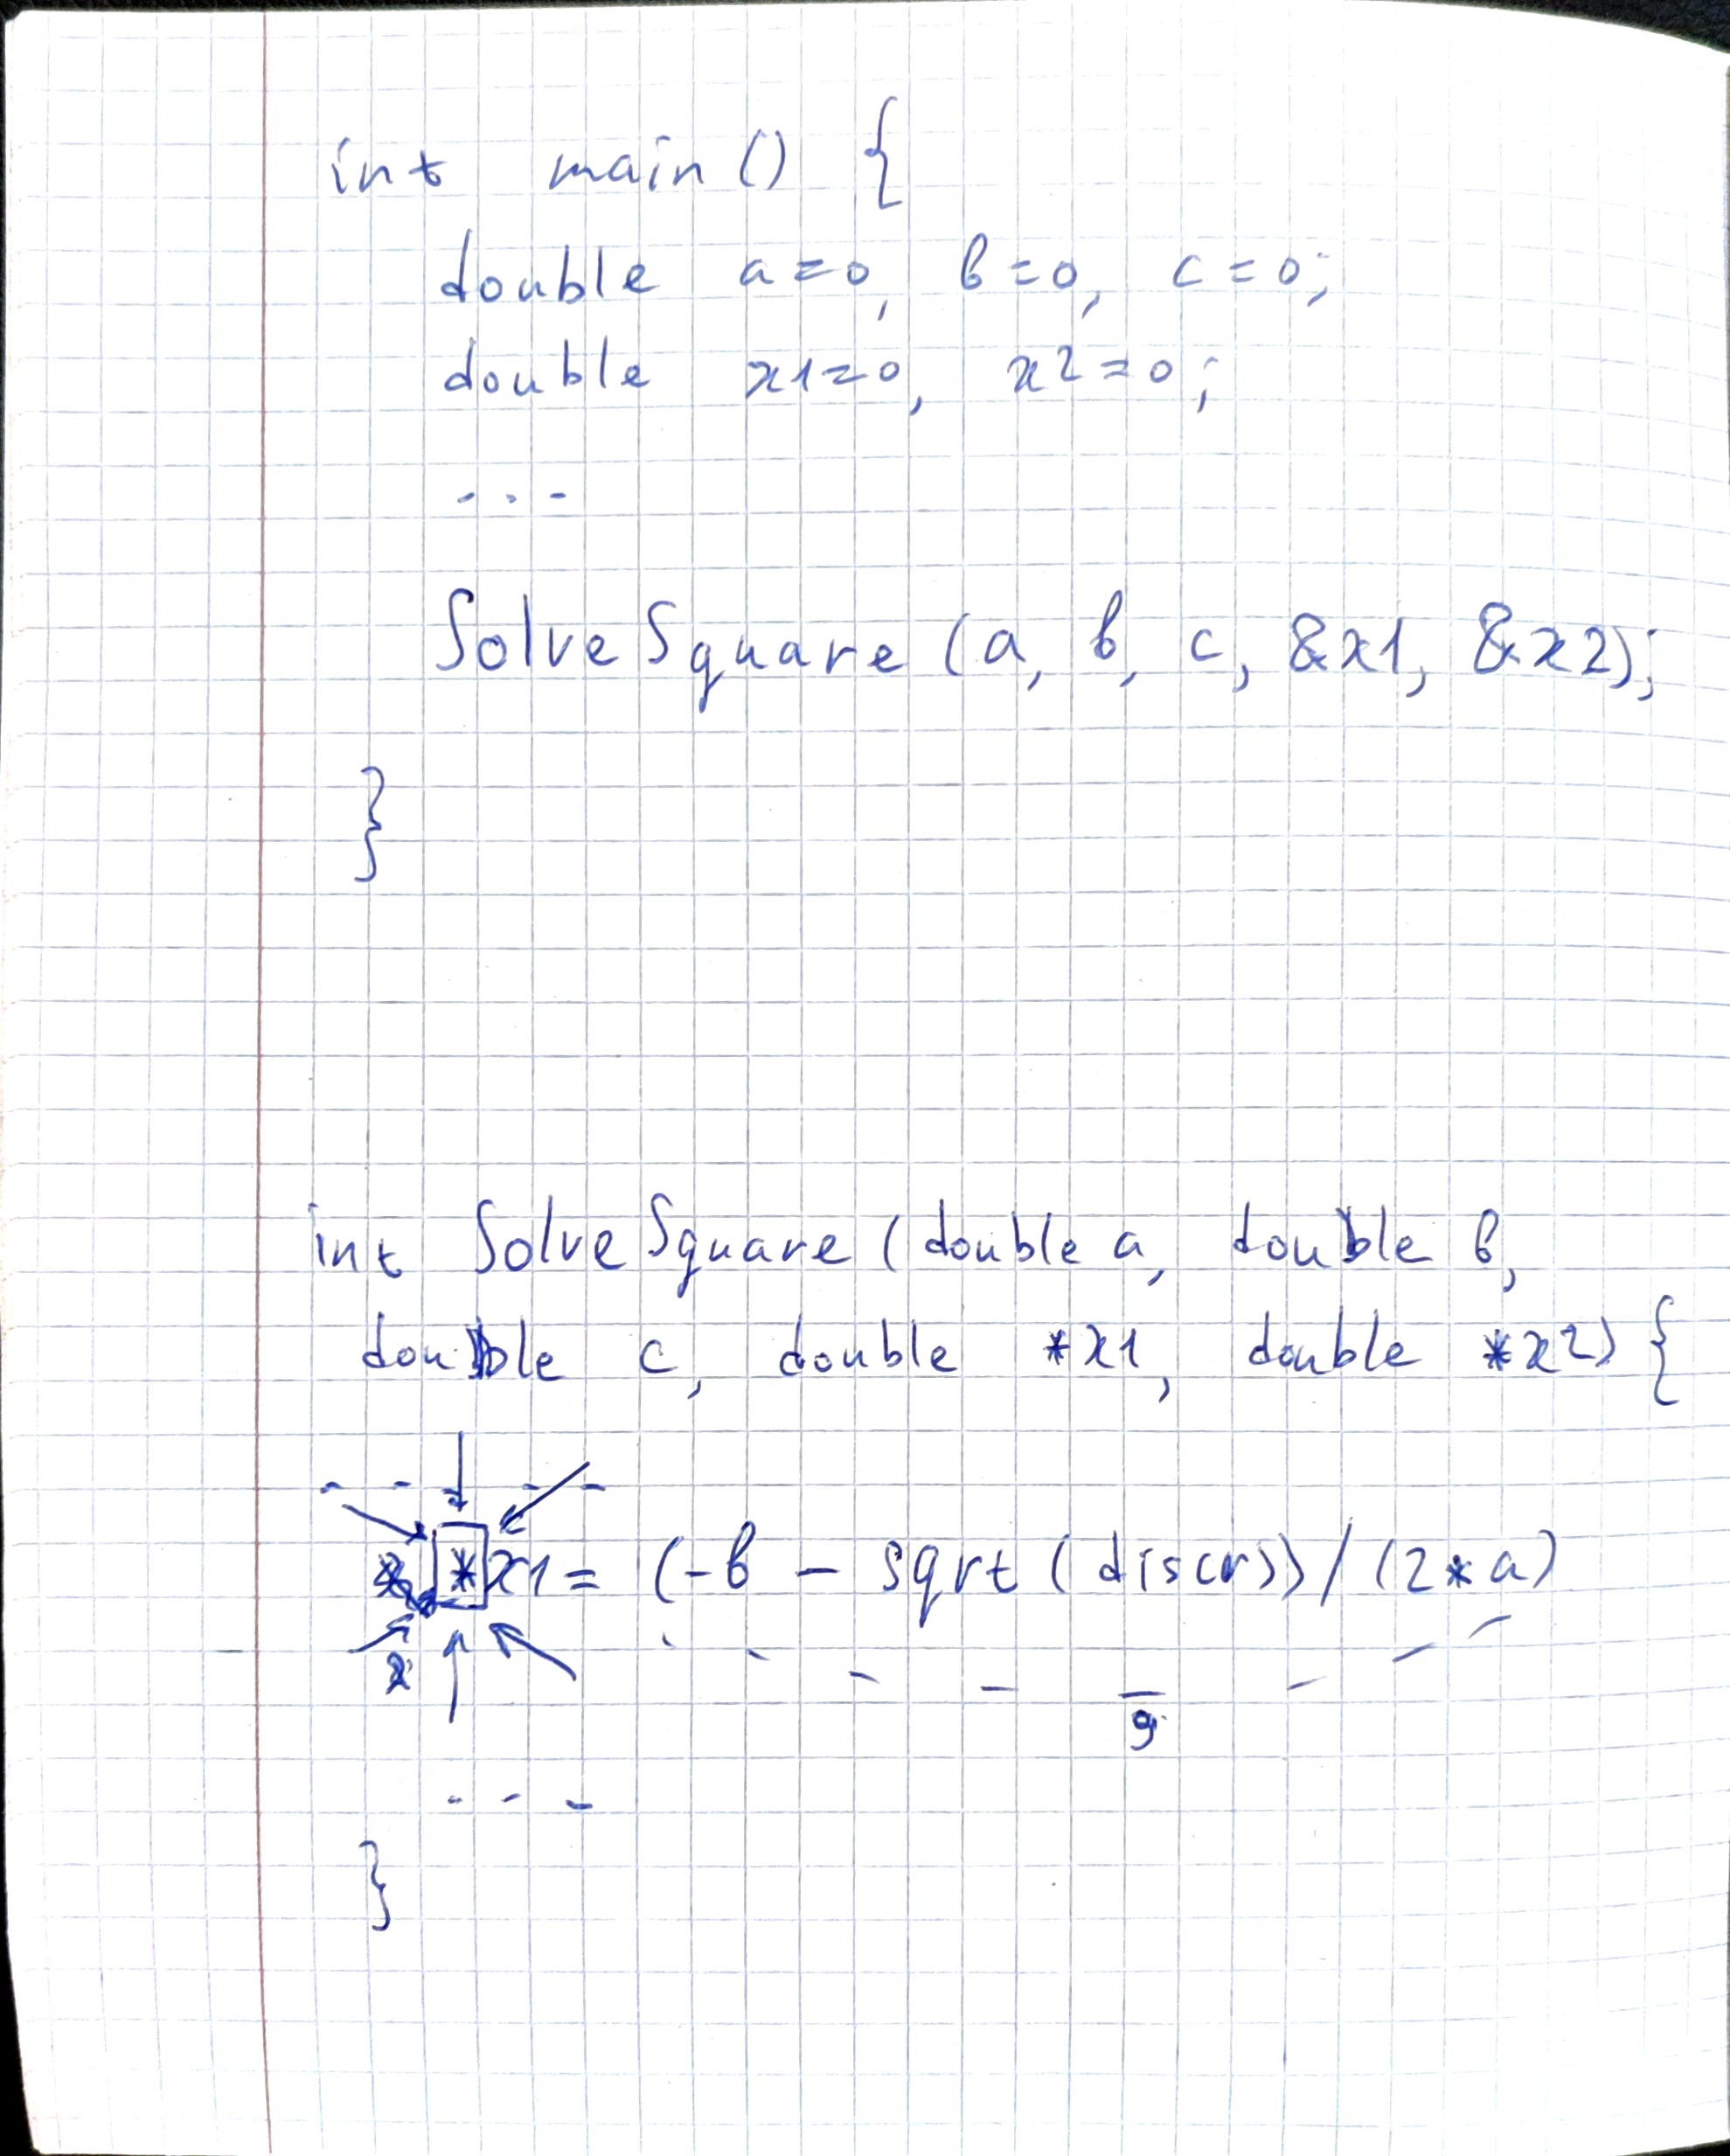 int main() {
double a=0, b=0, c=0;
double x1=0, x2=0;
...
SolveSquare (a, b, c, &x1, &x2);
}
int SolveSquare (double a, double b,
double c, double *x1, double *x2) {
- - - - -
*x1 = (-b - sqrt(discr))/(2*a)
9
...
}